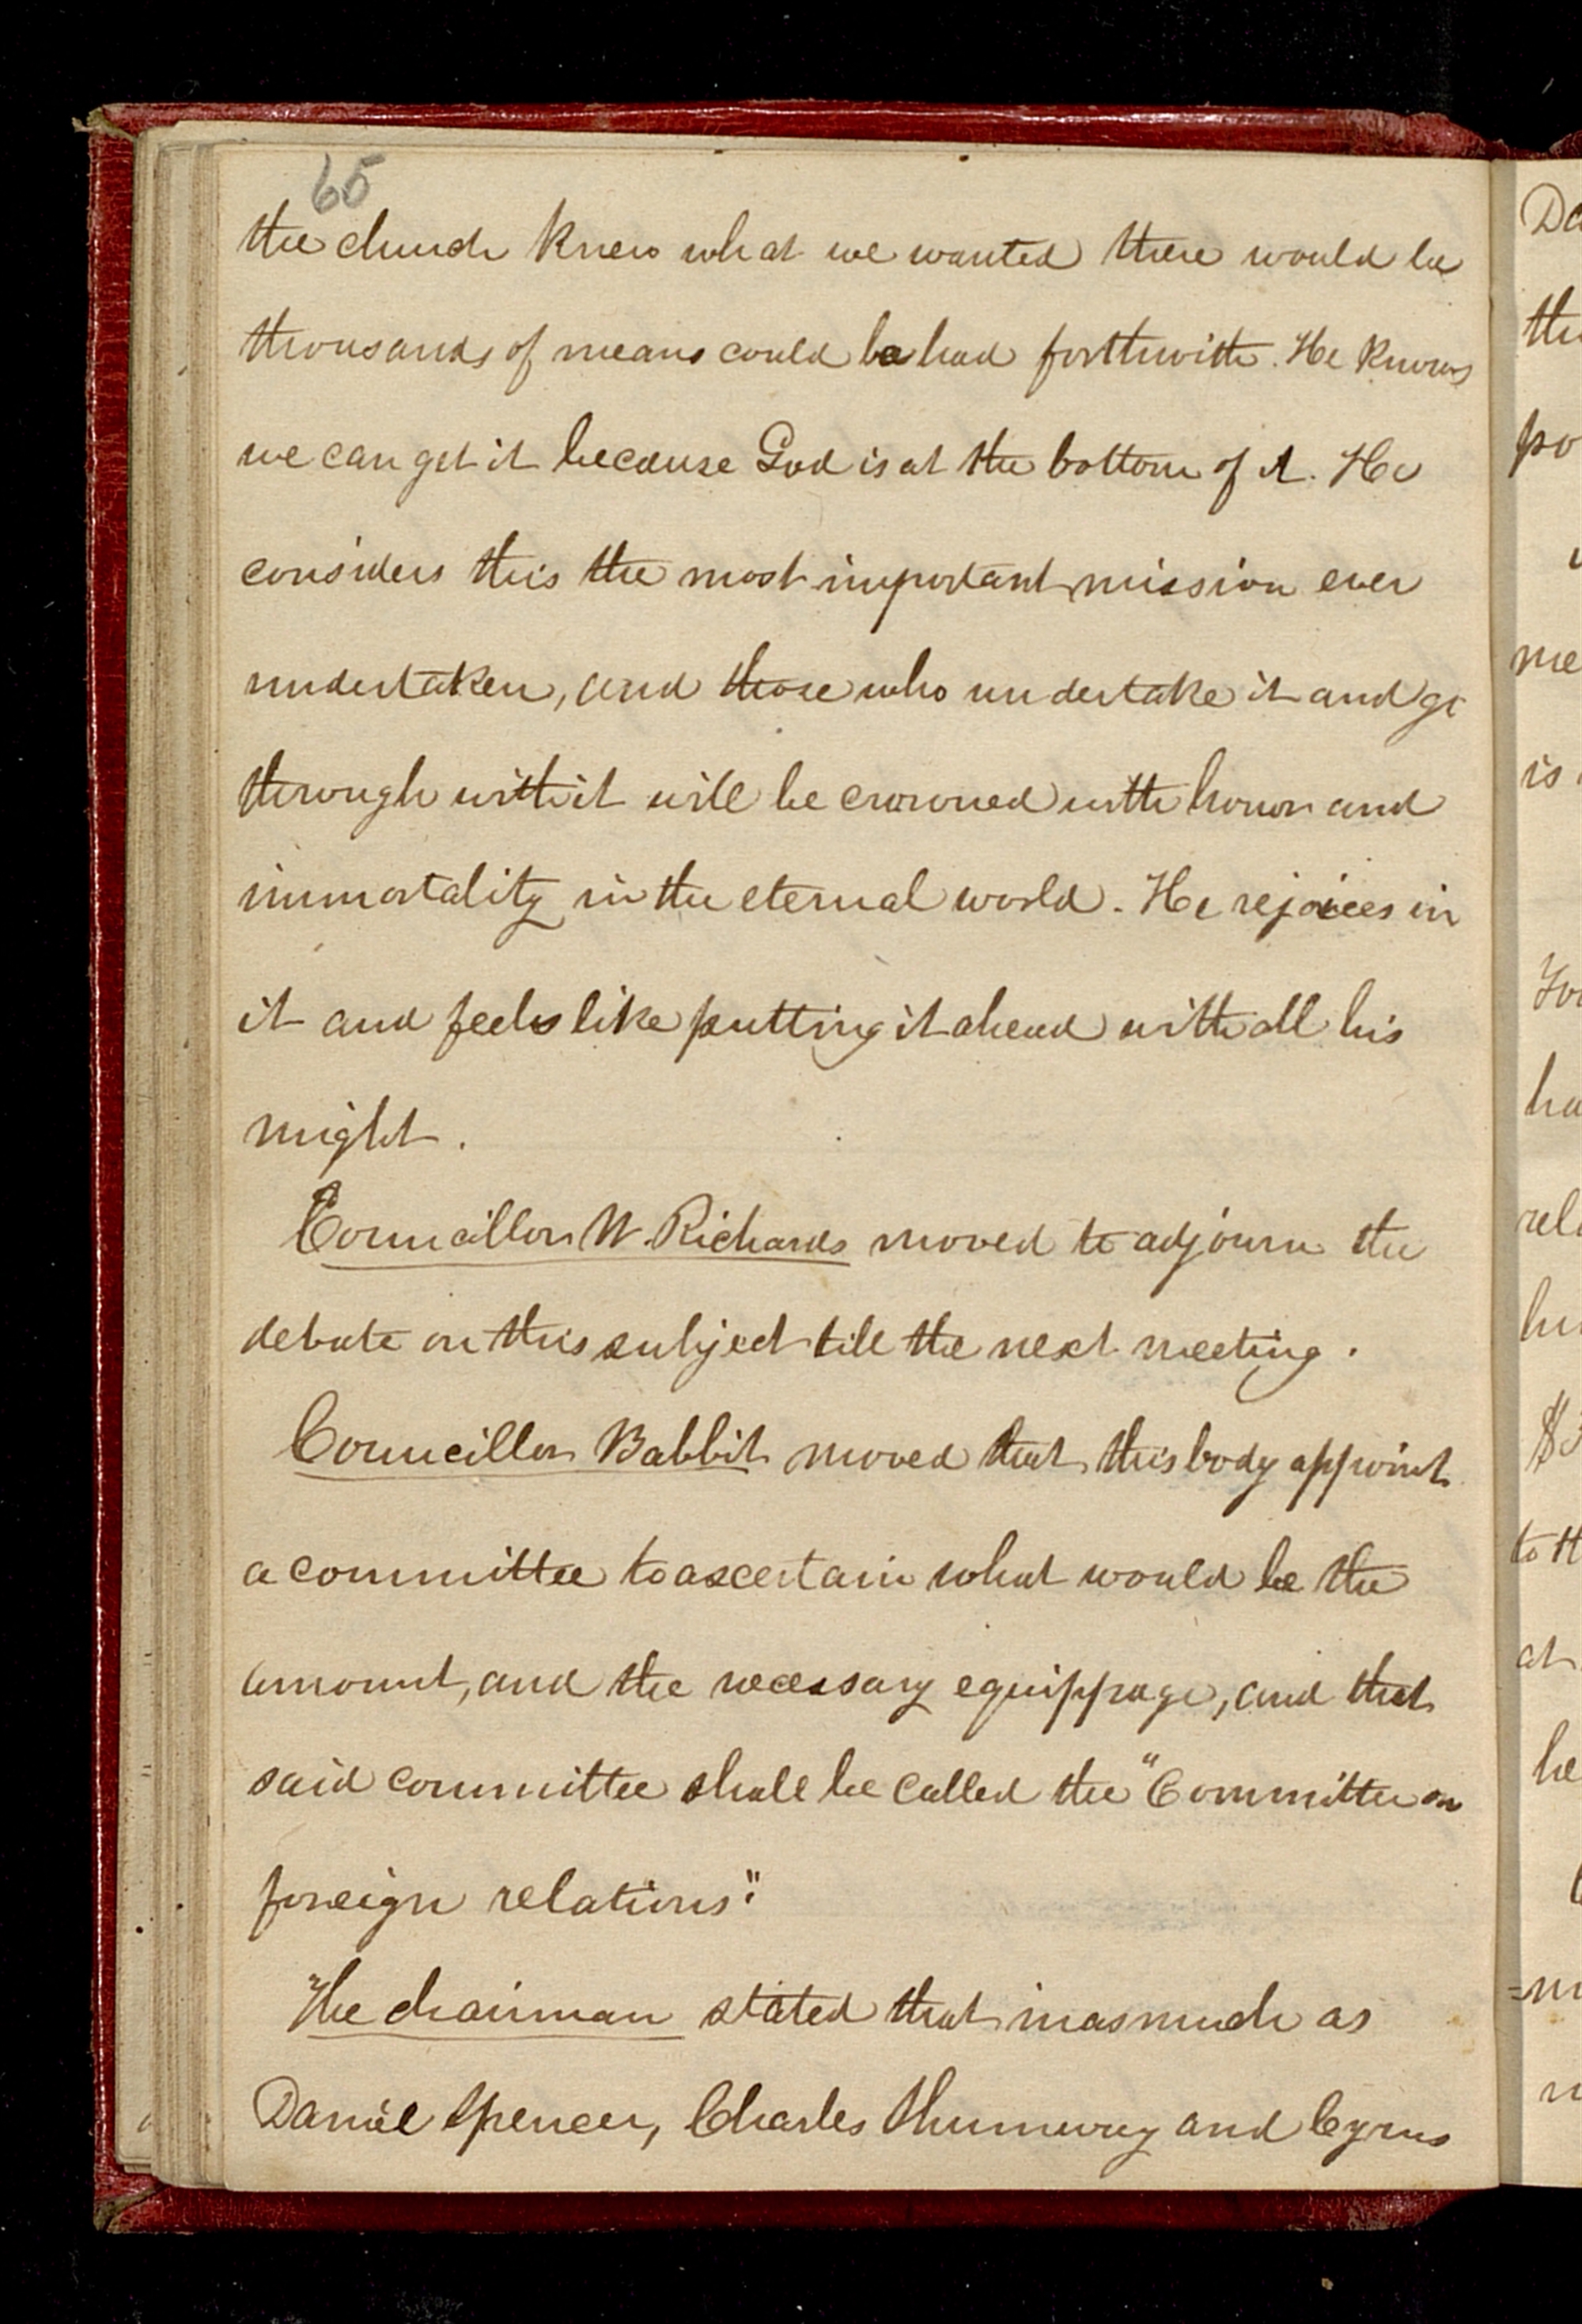 65
the church knew what we wanted there would be
thousands of means could be had forthwith. He knows
we can get it because God is at the bottom of it. He
considers this the most important mission ever
undertaken, and those who undertake it and go
through with it will be crowned with honor and
immortality in the eternal world. He rejoices in
it and feels like putting it ahead with all his
might.
Councillor W. Richards moved to adjourn the
debate on this subject till the next meeting.
Councillor Babbit moved that this body appoint
a committee to ascertain what would be the
amount, and the necessary equippage, and that
said committee shall be called the "Committee on
foreign relations".
The chairman stated that inasmuch as
Daniel Spencer, Charles Shumway and Cyrus
Da
the
po
me
is
You
ha
rel
hu
$3
to th
at
he
=m